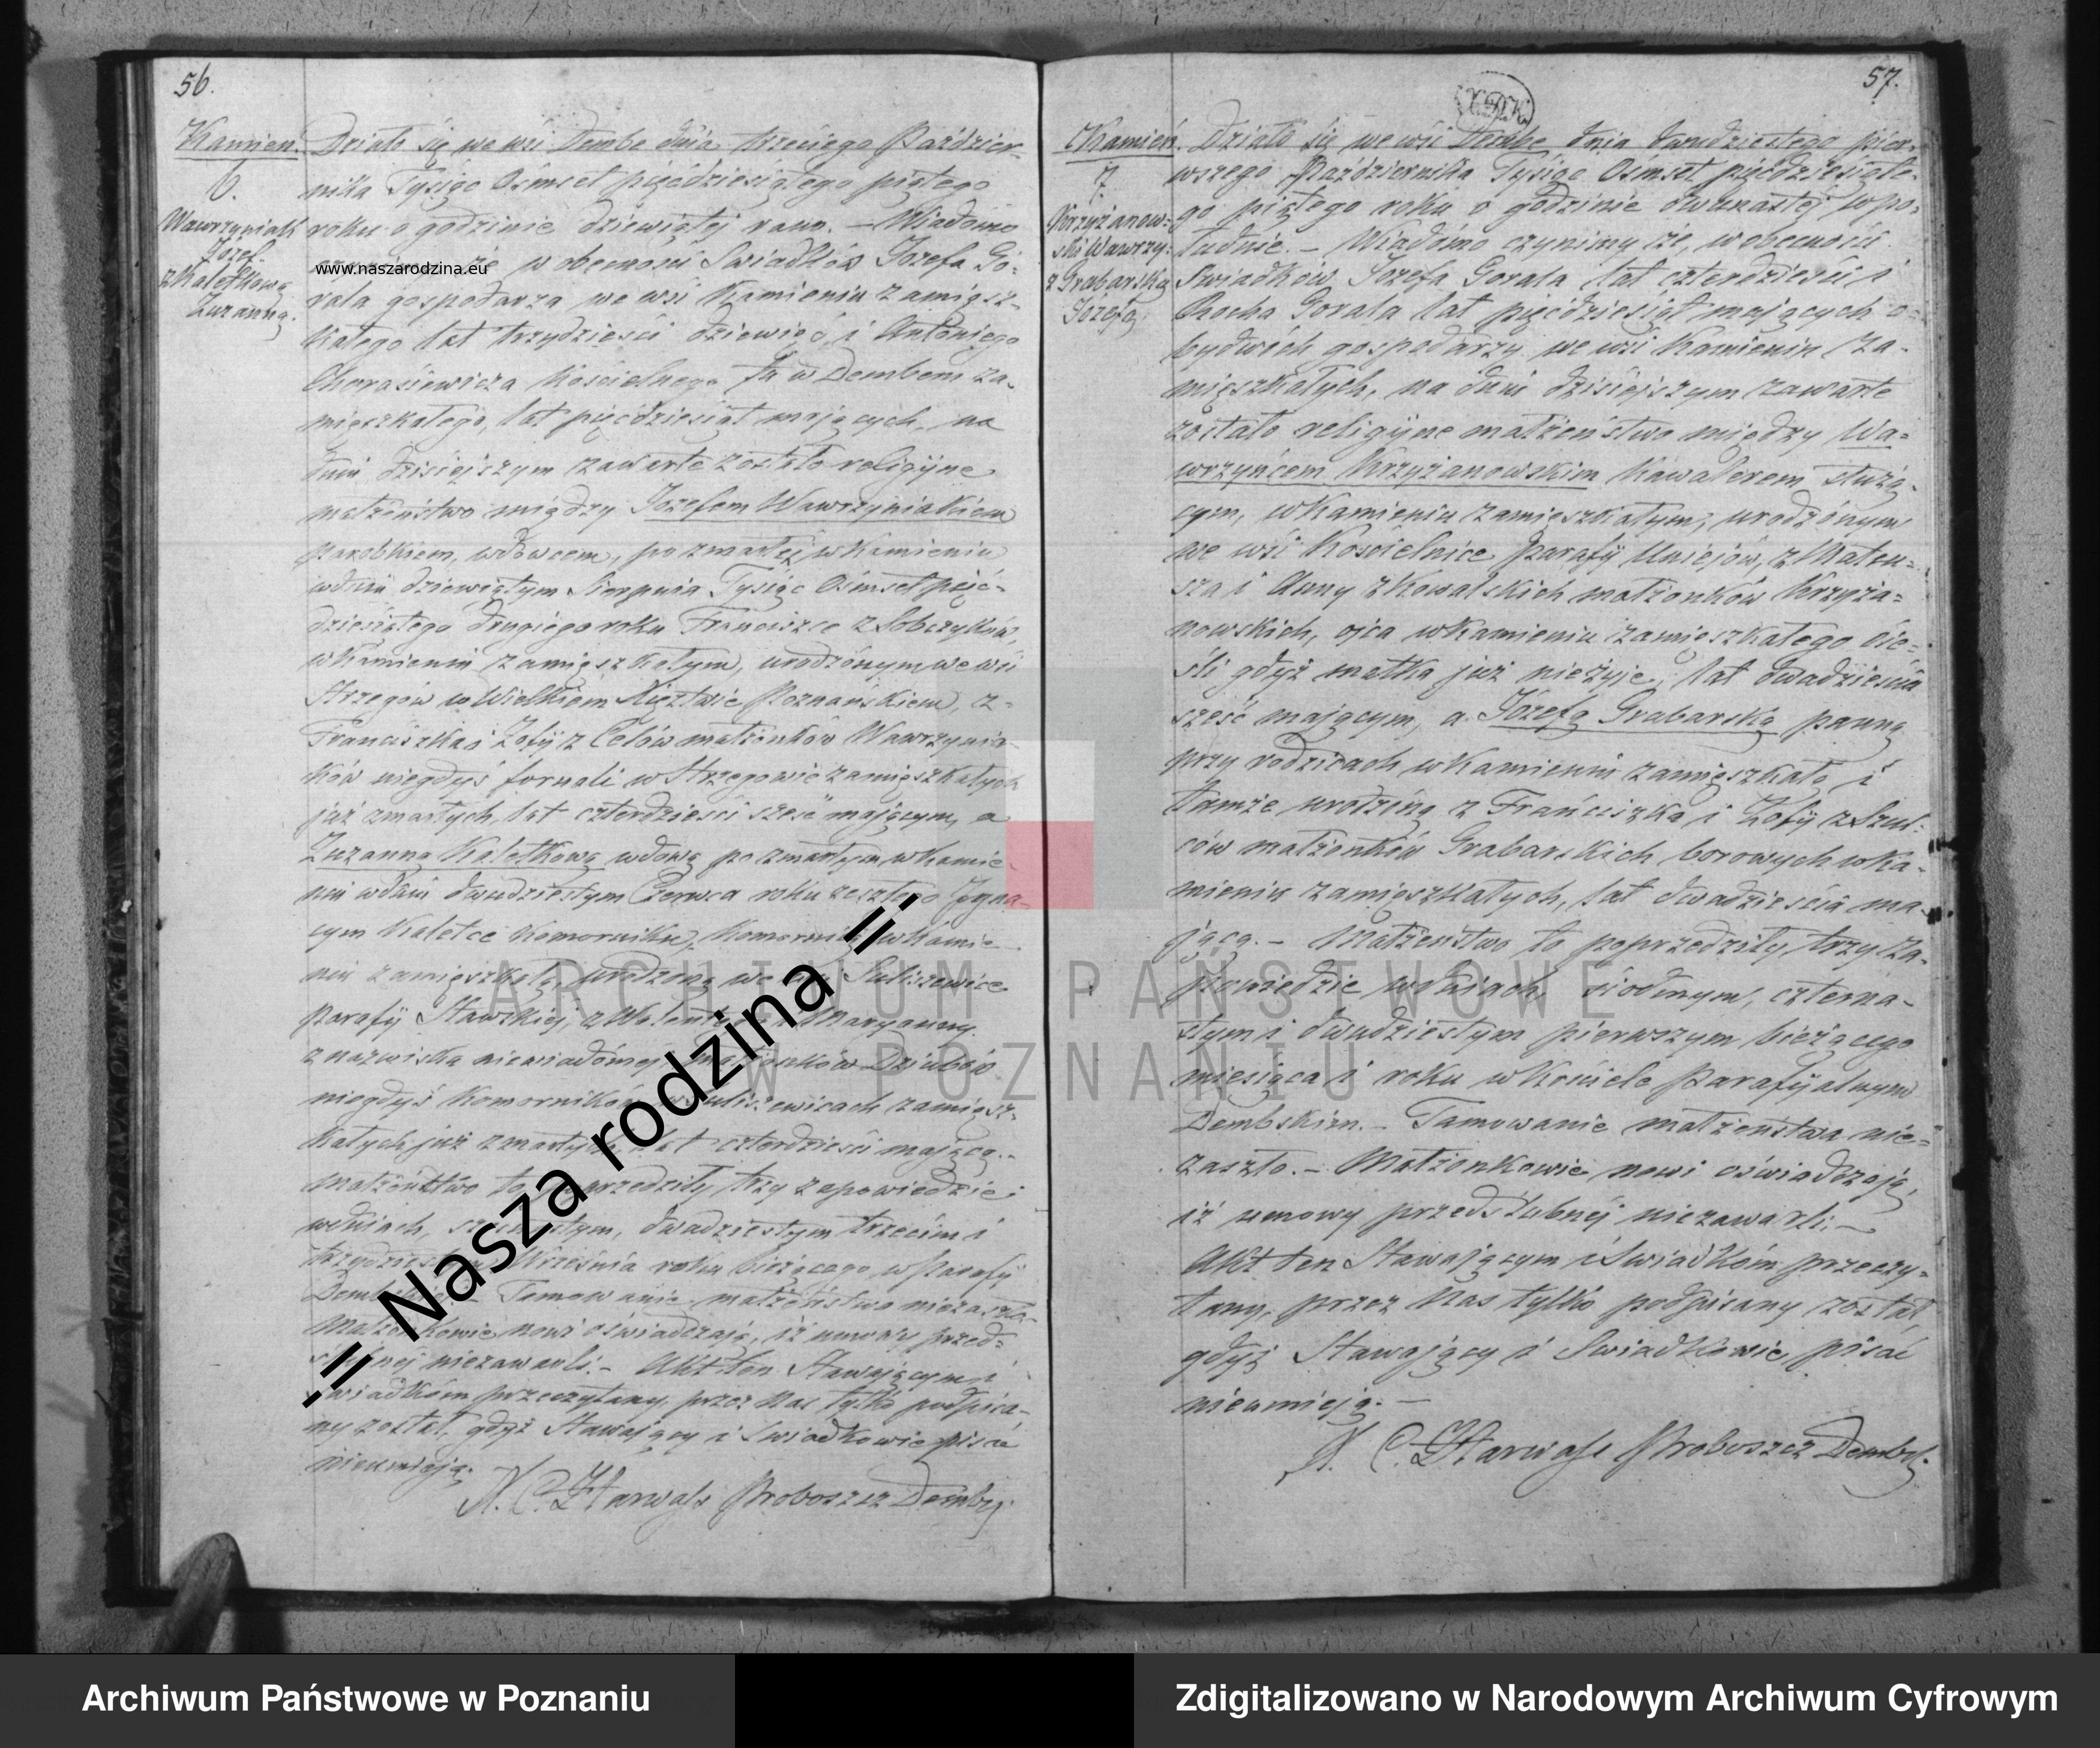 56.
Kamien.
6.
Wawrzyniak
Józef
z Kaletkową
Zuzanną.
Działo się we wsi Dembe dnia trzeciego Paździer-
nika Tysiąc Ośmset pięćdziesiątego piątego
roku o godzinie dziewiątej rano. — Wiadomo
że w obecności Swiadków Józefa Gó-
rala gospodarza we wsi Kamieniu zamiesz-
kałego lat trzydzieści dziewięć, i Antoniego
Chorasiewicza Kościelnego tu w Dembem za-
mięszkałego, lat pięćdziesiąt mających, na
dniu dzisiejszym zawarte zostało religijne
małżeństwo między Józefem Wawrzyniakiem
parobkiem, wdowcem, po zmarłej w Kamieniu
w dniu dziewiątym Sierpnia Tysiąc Ośmset pięć-
dziesiątego drugiego roku Franciszce z Sobczyków,
w Kamieniu zamięszkałym, urodzonym we wsi
Strzegów w Wielkiem Xięztwie Poznańskiem, z
Franciszka i Zofij z Celów małżonków Wawrzynia-
ków niegdyś fornali w Strzegowie zamięszkałych
już zmarłych, lat czterdzieści sześć mającym, a
Zuzanną Kaletkową wdową po zmarłym w Kamie-
niu w dniu dwudziestym Czerwca roku zeszłego Igna-
cym Kaletce Komorniku, Komornicą w Kamie-
niu zamięszkałą, urodzoną we wsi Suliszewice
parafij Stawskiej, z Maryanny
z nazwiska niewiadomej małżonków Dziubów
niegdyś Komorników w Suliszewicach zamięsz-
kałych już zmarłych, lat czterdzieści mającą. -
Małżeństwo to poprzedziły trzy zapowiedzie
w dniach, szesnastym, dwudziestym trzecim i
trzydziestym Września roku bieżącego w Parafij
Dembskiej. - Tamowanie małżeństwa niezaszło.
Małżonkowie nowi oświadczają, iż umowy przed-
ślubnej niezawarli. - Akt ten Stawającym i
Swiadkóm przeczytany, przez Nas tylko podpisa-
ny został, gdyż Stawający i Swiadkowie pisać
nieumieją.
Proboszcz Dembs.
www.naszarodzina.eu
.:= Nasza rodzina =:.
57.
Kamień.
7.
Krzyżanow-
ski Wawrzy:
z Grabarską
Józefą
Działo się we wsi Dembe dnia dwudziestego pier-
wszego Października Tysiąc Ośmset pięćdziesiąte-
go piątego roku o godzinie dwunastej w po-
łudnie. - Wiadomo czynimy, iż, w obecności
Swiadków Józefa Gorala lat czterdzieści i
Rocha Gorala lat pięćdziesiąt mających o-
bydwóch gospodarzy we wsi Kamieniu za-
mięszkałych, na dniu dzisiejszym zawarte
zostało religijne małżeństwo między Wa-
wrzyńcem Krzyżanowskim Kawalerem służą-
cym, w Kamieniu zamięszkałym, urodzonym
we wsi Kościelnice parafij Uniejów, z Mateu-
sza i Anny z Kowalskich małżonków Krzyża-
nowskich, ojca w Kamieniu zamięszkałego cie-
śli gdyż matka już nieżyje, lat dwadzieścia
sześć mającym, a Józefą Grabarską panną
przy rodzicach w Kamieniu zamięszkałą i
tamże urodzoną z Franciszka i Zofij z Szul-
ców małżonków Grabarskich borowych w Ka-
mieniu zamięszkałych, lat dwadzieścia ma-
jącą. - Małżeństwo to poprzedziły trzy za-
powiedzie w dniach, siódmym, czterna-
stym i dwudziestym pierwszym bieżącego
miesiąca i roku w Kościele Parafijalnym
Dembskim. - Tamowanie małżeństwa nie-
zaszło. - Małżonkowie nowi oświadczają,
iż umowy przedślubnej niezawarli. -
Akt ten Stawającym i Swiadkóm przeczy-
tany, przez Nas tylko podpisany został,
gdyż Stawający i Swiadkowie pisać
nieumieją. -
Proboszcz Dembs.
ARCHIWUM PAŃSTWOWE
W POZNANIU
Archiwum Państwowe w Poznaniu
Zdigitalizowano w Narodowym Archiwum Cyfrowym